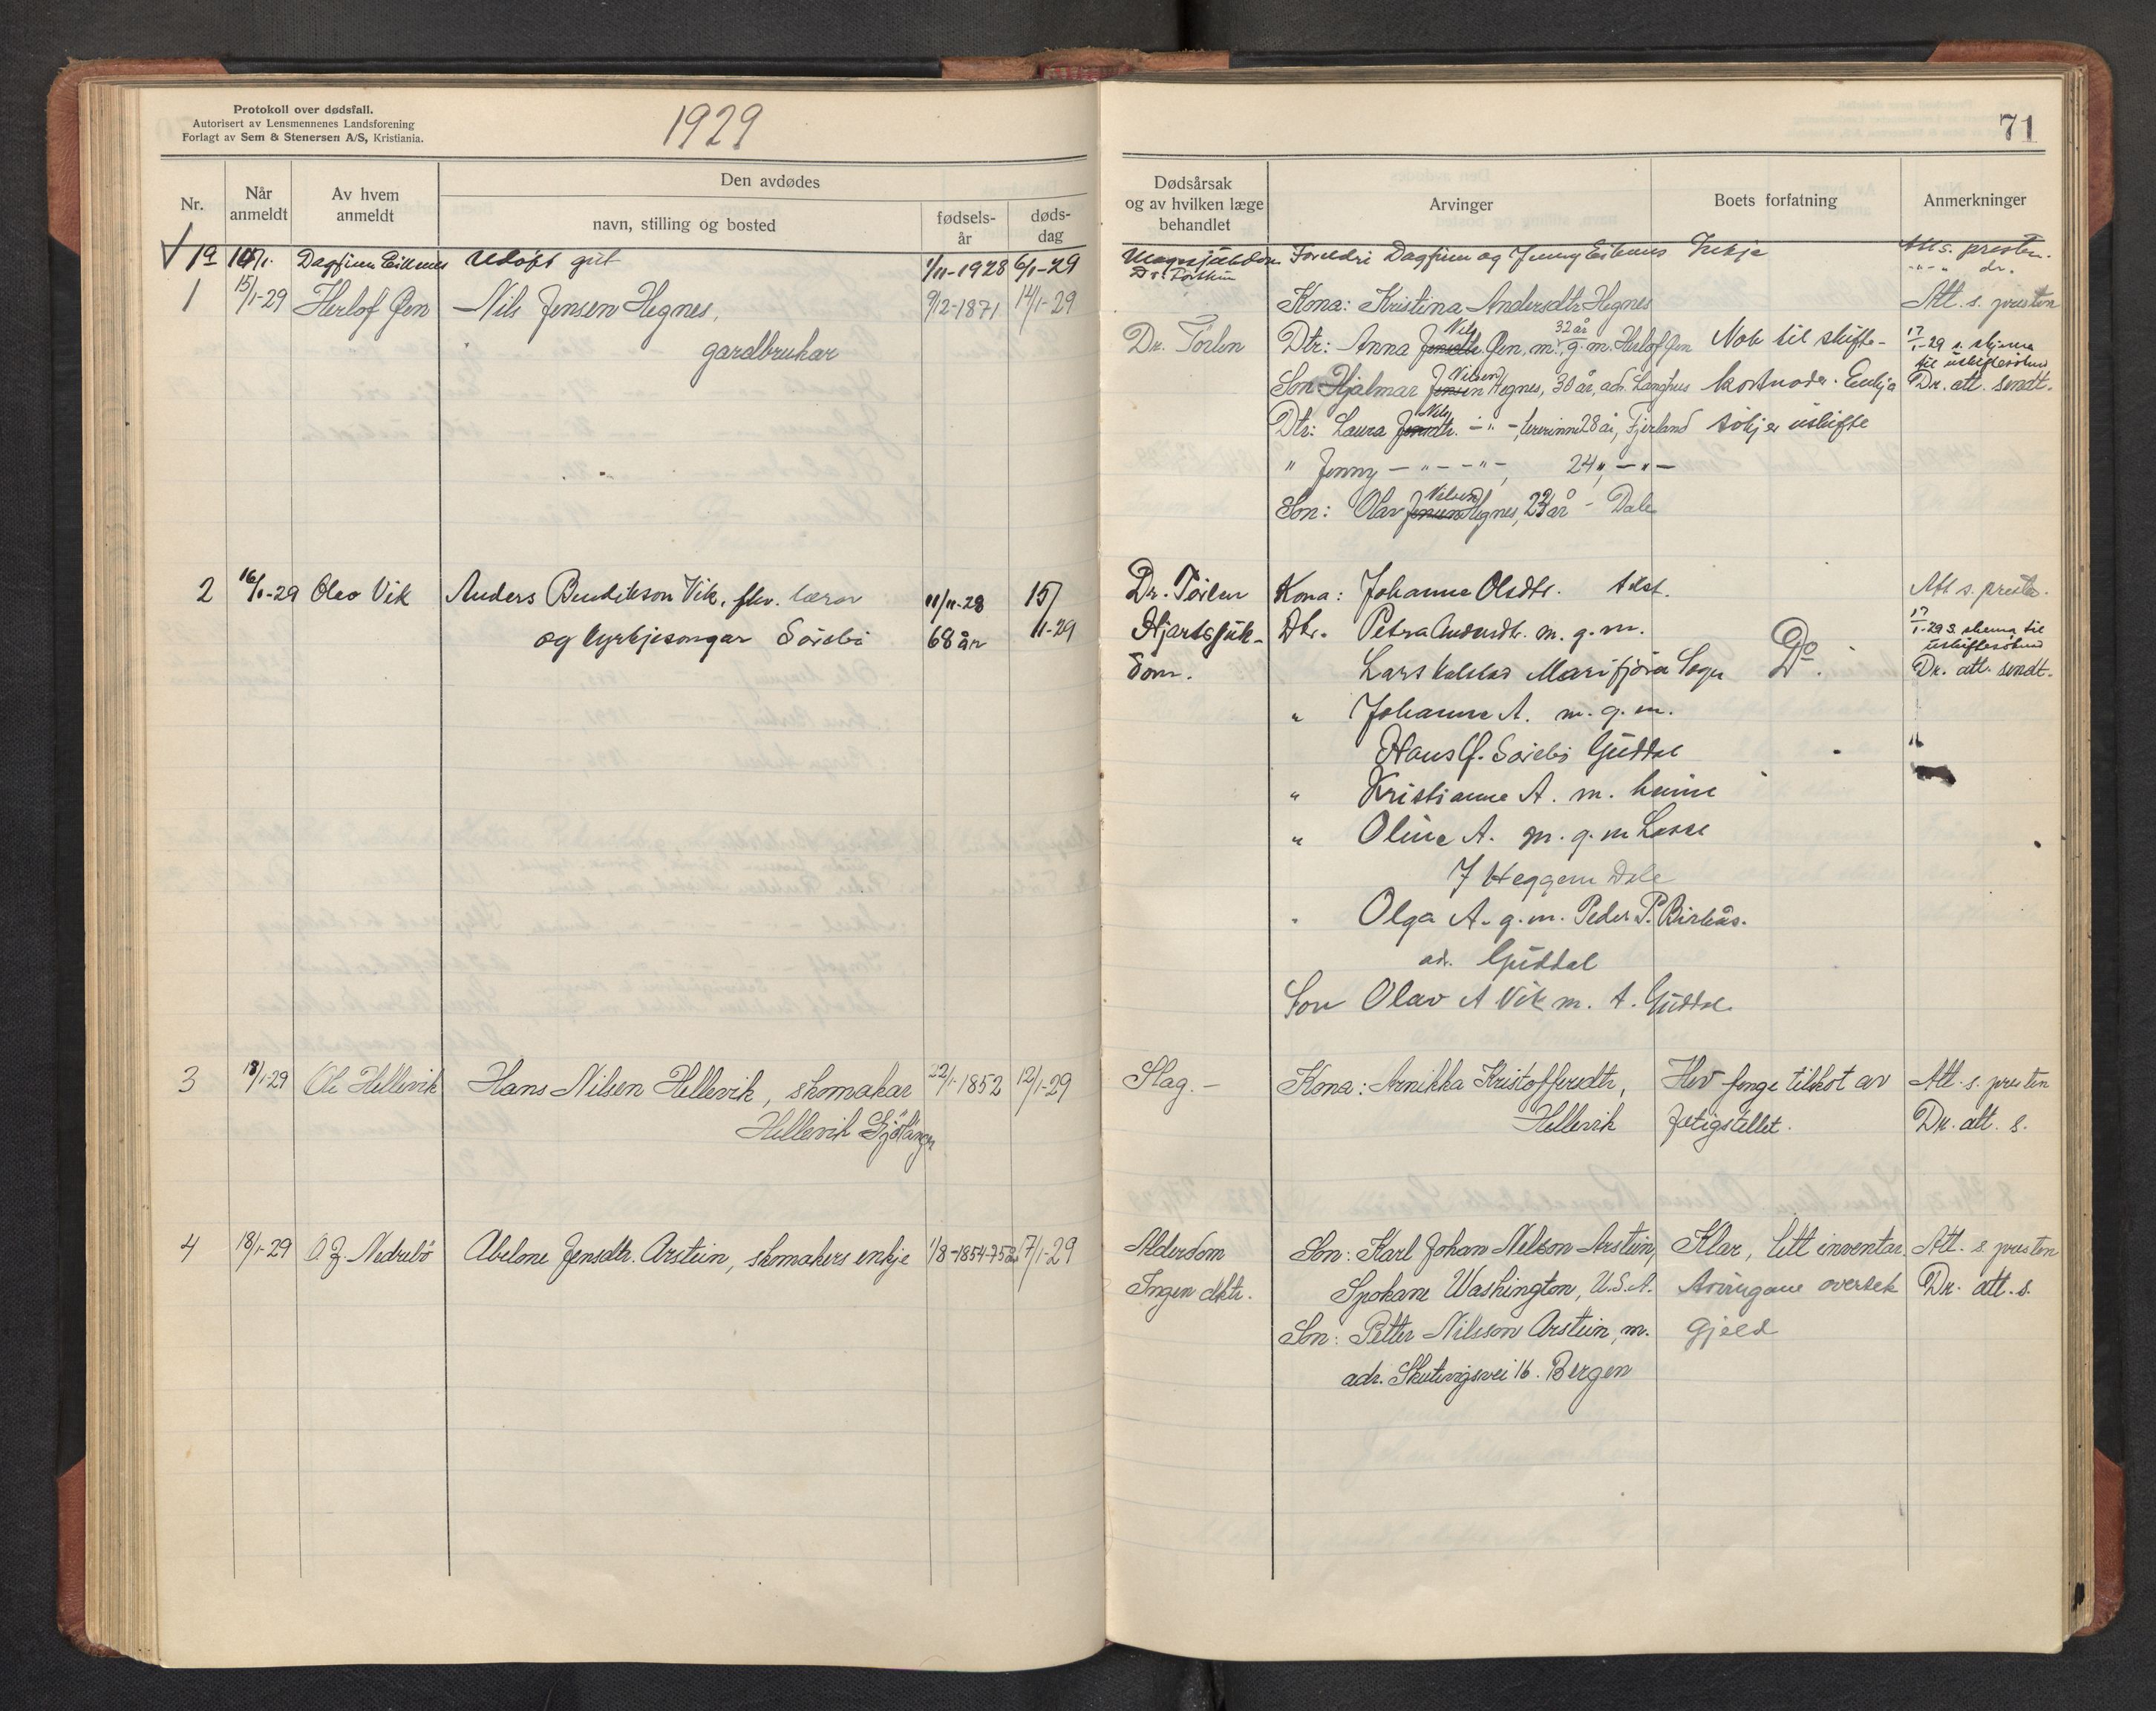 Protokoll over dødsfall.
Autorisert av Lensmennenes Landsforening
Forlagt av Sem & Stenersen A/S, Kristiania.
1929
Nr.
Når anmeldt
Av hvem anmeldt
Den avdødes
navn, stilling og bosted
fødsels-år
døds-dag
1a 10/1. Dagfinn Eikenes Udøft gut 1/11-1928 6/1-29
1 15/1-29 Herlof Øen Nils Jensen Hegnes, 9/12-1871 14/1-29
gardbrukar
2 16/1-29 Olav Vik Anders Bendikson Vik, fhv. lærar 11/11-28 15/
og kyrkjesongar Sörebö 68 år 1-29
3 18/1-29 Ole Hellevik Hans Nilsen Hellevik, skomakar 22/1-1852 12/1-29
Hellevik
4 18/1-29 O. J. Nedrebö Abelone Jensdtr. Arstein, skomakers enkje 1/8-1854-75 år 17/1-29
71
Dødsårsak
og av hvilken læge
behandlet
Arvinger
Boets forfatning
Anmerkninger
Magesjukdom Foreldri Dagfinn og Jenny Eikenes Inkje Att s. presten.
Dr. -"- dr.
Kona: Kristina Andersdtr Hegnes Att. s. presten
Nils 32 år
Dr. Törlen Dtr: Anna Jensdtr. Øen, m., g. m. Herlof Øen Nok til skifte- 17/1-29 s. skjema
til uskiftesöknad
Nilsen
Son Hjalmar Jensen Hegnes, 30 år, adr. Langhus kostnader. Enkja Dr. att. sendt.
Nils
Dtr: Laura Jensdtr. -"-, lærerinne 28 år, Fjærland sökjer uskifte
" Jenny -"- -"-, 24 " -"-
Nilsen
Son: Olav Jensen Hegnes, 22 år - Dale
Dr. Törlen Kona: Johanne Olsdtr. Att s. presten.
Hjartesjuk- Dtr. Petra Andersdtr. m. g. m. 17/1-29 s. skema til
uskiftesöknad
dom. Lars Kalstad Marifjöra Sogn Do. Dr. att. sendt.
" Johanne A. m. g. m.
Hans J. Sörebö Guddal
" Kristianne A. m. heime
" Oline A. m. g. m Lasse
J Heggem Dale
" Olga A. g. m. Peder P. Birkås.
adr. Guddal
Son Olav A Vik m. A. Guddal
Slag. - Kona: Arnikka Kristoffersdtr, Hev fenge tilskot av Att. s. presten
Hellevik fatigstellet. Dr. att. s.
Alderdom Son: Karl Johan Nelson Arstein, Klar, litt inventar. Att. s. presten
Ingen dktr. Spokane Washington, U.S.A. Arvingane overtek Dr. att. s.
Son: Petter Nilsson Arstein, m. gjeld
adr. Skutevigsvei 16. Bergen